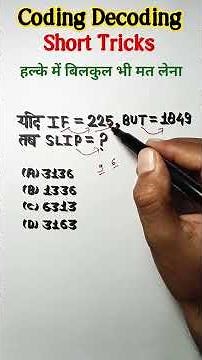 Coding Decoding
Short Tricks
हल्के में बिलकुल भी मत लेना
यदि IF = 225, BUT = 1849
तब SLIP = ?
9 6
(A) 3136
(B) 1336
(C) 6313
(D) 3163